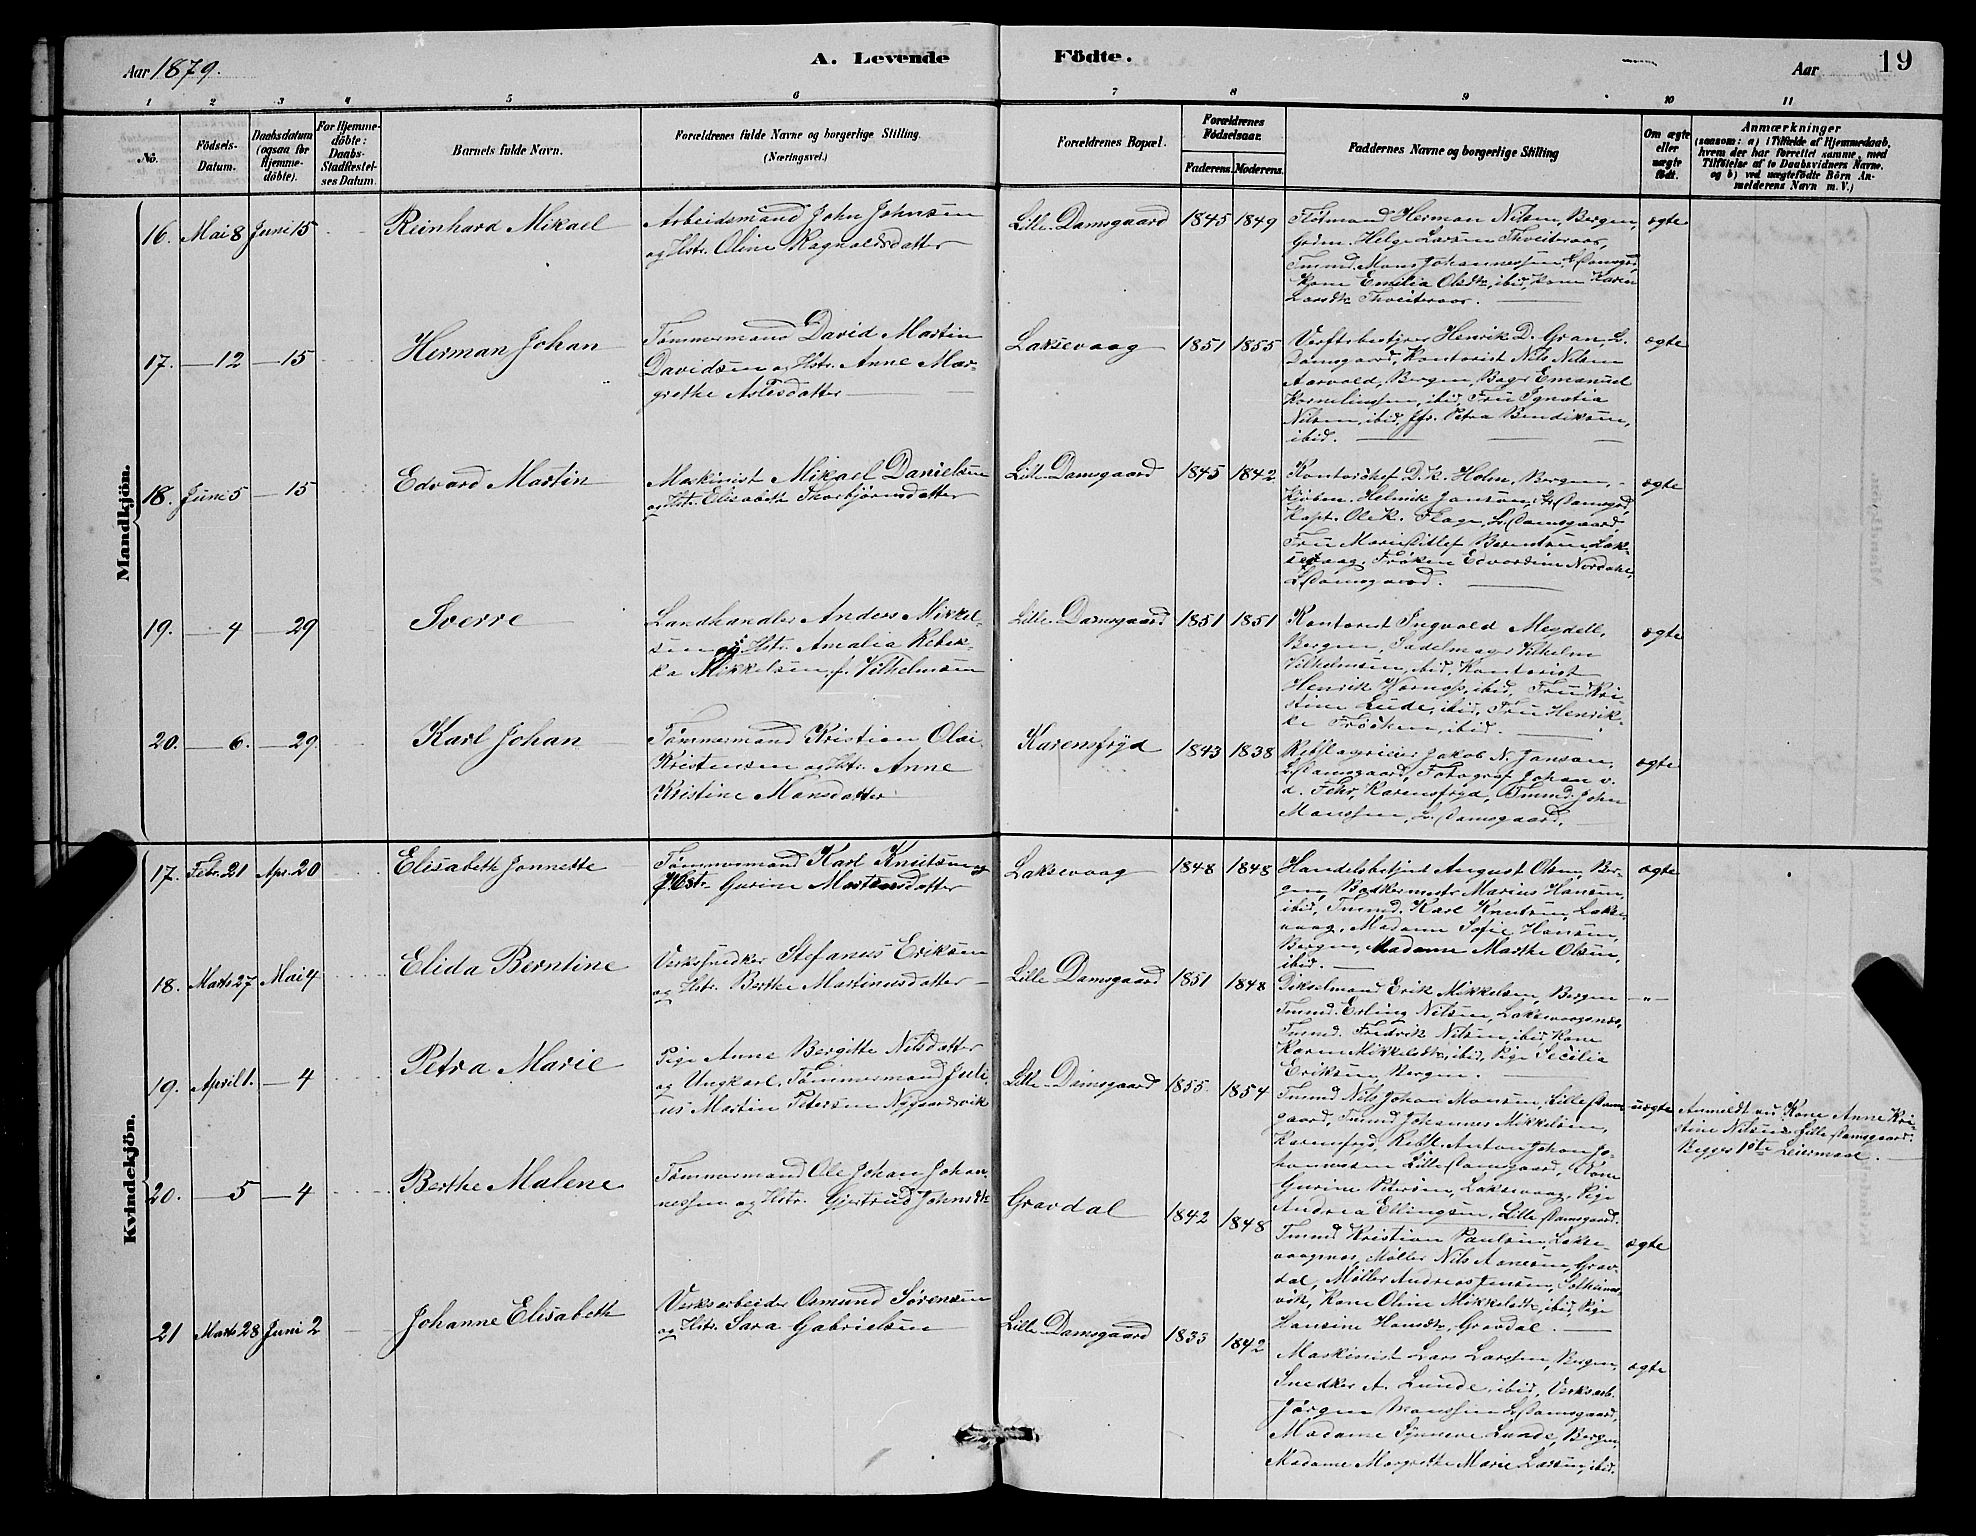 Aar 1879.
A. Levende
Födte.
Aar
19
1 2 3 4 5 6 7 8 9 10 11
No.
Födsels-
Datum.
Daabsdatum
(ogsaa for
Hjemme-
döbte).
For Hjemme-
döbte:
Daabs-
Stadfæstel-
ses Datum.
Barnets fulde Navn.
Forældrenes fulde Navne og borgerlige Stilling.
(Næringsvei.)
Forældrenes Bopæl.
Forældrenes
Födselsaar.
Faderens. Moderens.
Faddernes Navne og borgerlige Stilling
Om ægte
eller
uægte
födt.
Anmærkninger
(saasom: a) i Tilfælde af Hjemmedaab,
hvem der har forrettet samme, med
Tilföielse af to Daabsvidners Navne.
og b) ved uægtefödte Börn An-
melderens Navn m. V.)
Mandkjön.
16. Mai 8 Juni 15
Reinhard Mikael
Arbeidsmand John Johnsen
og Hstr. Oline Ragnaldsdatter
Lille Damsgaard
1845 1849
Flötmand Herman Nilsen, Bergen,
Grdm. Helge Larsen Thveiteraas,
Tmmd. Mons Johannessen, L. Damsgrd,
Kone Emilia Olsdtr, ibid, Kone Karen
Larsdtr Thveiteraas.
ægte
17. — 12 — 15
Herman Johan
Tømmermand David Martin
Davidsen og Hstr. Anne Mar-
grethe Astesdatter
Laksevaag
1851 1855
Verftsbestyrer Henrik D. Gran, L.
Damsgaard, Kontorist Nils Nilsen
Aarvold, Bergen, Bager Emanuel
Kornelinssen, ibid, Fru Ignatia
Nilsen, ibid, Jfr. Petra Bendiksen,
ibid.
ægte
18. Juni 5 — 15
Edvard Martin
Maskinist Mikael Danielsen
og Hstr. Elisabeth Thorbjörnsdatter
Lille Damsgaard
1845 1842
Kontorchef D. K. Holm, Bergen,
Kjöbm. Helmik Janson, L. Damsgrd,
Kapt. Ole K. Flage, L. Damsgaard,
Fru Marie Ditlef Berentsen, Lak-
sevaag, Fröken Edvardine Nordahl,
L. Damsgaard.
ægte
19. — 4 — 29
Sverre
Landhandler Anders Mikkel-
sen og Hstr. Amalia Rebek-
ka Mikkelsen, f. Vilhelmsen
Lille Damsgaard
1851 1851
Kontorist Ingvald Meydell,
Bergen, Sadelmager Vilhelm
Vilhelmsen, ibid, Kontorist
Henrik, ibid, Fru Kri-
stine Lude, ibid, Fru Henrik-
ke Fröchen, ibid.
ægte
20. — 6. — 29
Karl Johan
Tømmermand Kristian Olai
Kristensen og Hstr. Anne
Kristine Monsdatter
Karensfryd
1843 1838
Rebslagrieier Jakob N. Janson,
L. Damsgaard, Fotograf Johan v.
d. Fehr, Karensfryd, Tmmd. John
Monssen, L. Damsgaard.
ægte
Kvindekjön.
17. Febr. 21 Apr. 20
Elisabeth Jonnette
Tømmermand Karl Knutsen og
Hstr. Gurine Mortensdatter
Laksevaag
1848 1848
Handelsbetjent August Olsen, Ber-
gen, Bødkermstr Marius Hansen,
ibid, Tmmd. Karl Knutsen, Lakse-
vaag, Madame Sofie Hansen,
Bergen, Madame Marthe Olsen,
ibid.
ægte
18. Marts 27 Mai 4
Elida Berntine
Verkssnedker Stefanus Eriksen
og Hstr. Berthe Martinusdatter
Lille Damsgaard
1851 1848
Bikselmand Erik Mikkelsen, Bergen
Tmmd. Erling Nilsen, Laksevaagsnæs,
Tmmd. Fredrik Nilsen, ibid, Kone
Karen Mikkelsdtr, ibid, Pige Secilia
Eriksen, Bergen.
— „ —
19. April 1. — 4
Petra Marie
Pige Anne Bergitte Nilsdatter
og Ungkarl, Tømmermand Juli-
us Martin Petersen Nygaardsvik
Lille Damsgaard
1855 1854
Tmmd Nils Johan Monsen, Lille Dams-
gaard, Tmmd Johannes Mikkelsen,
Karensfryd, Rebsl. Anton Johan Jo-
hannesen Lille Damsgaard, Kone
Gurine Petersen, Laksevaag, Pige
Andrea Ellingsen, Lille Damsgaard.
uægte
Anmeldt av Kone Anne Kri-
stine Nilsen, Lille Damsgaard.
Begges 1ste Leiermaal.
20. — 5 — 4
Berthe Malene
Tømmermand Ole Johan Johan-
nessen og Hstr. Gjertrud Johnsdtr
Gravdal
1842 1848
Tmmd Kristian Paulsen, Lakse-
vaagnes, Møller Nils Aanesen, Grav-
dal, Møller Andreas Jensen, Solheims-
vik, Kone Oline Mikkelsdtr, ibid, Pige
Hansine Hansdtr, Gravdal.
ægte
21 Marts 28 Juni 2
Johanne Elisabeth
Verksarbeider Osmund Sørensen
og Hstr. Sara Gabrielsen
Lille Damsgaard
1833 1842
Maskinist Lars Larssen, Bergen,
Snedker A. Lunde, ibid, Verksarb.
Jörgen Monssen L. Damsgaard,
Madame Synneve Lunde, Bergen,
Madame Margrethe Marie Larsen, ibid.
ægte